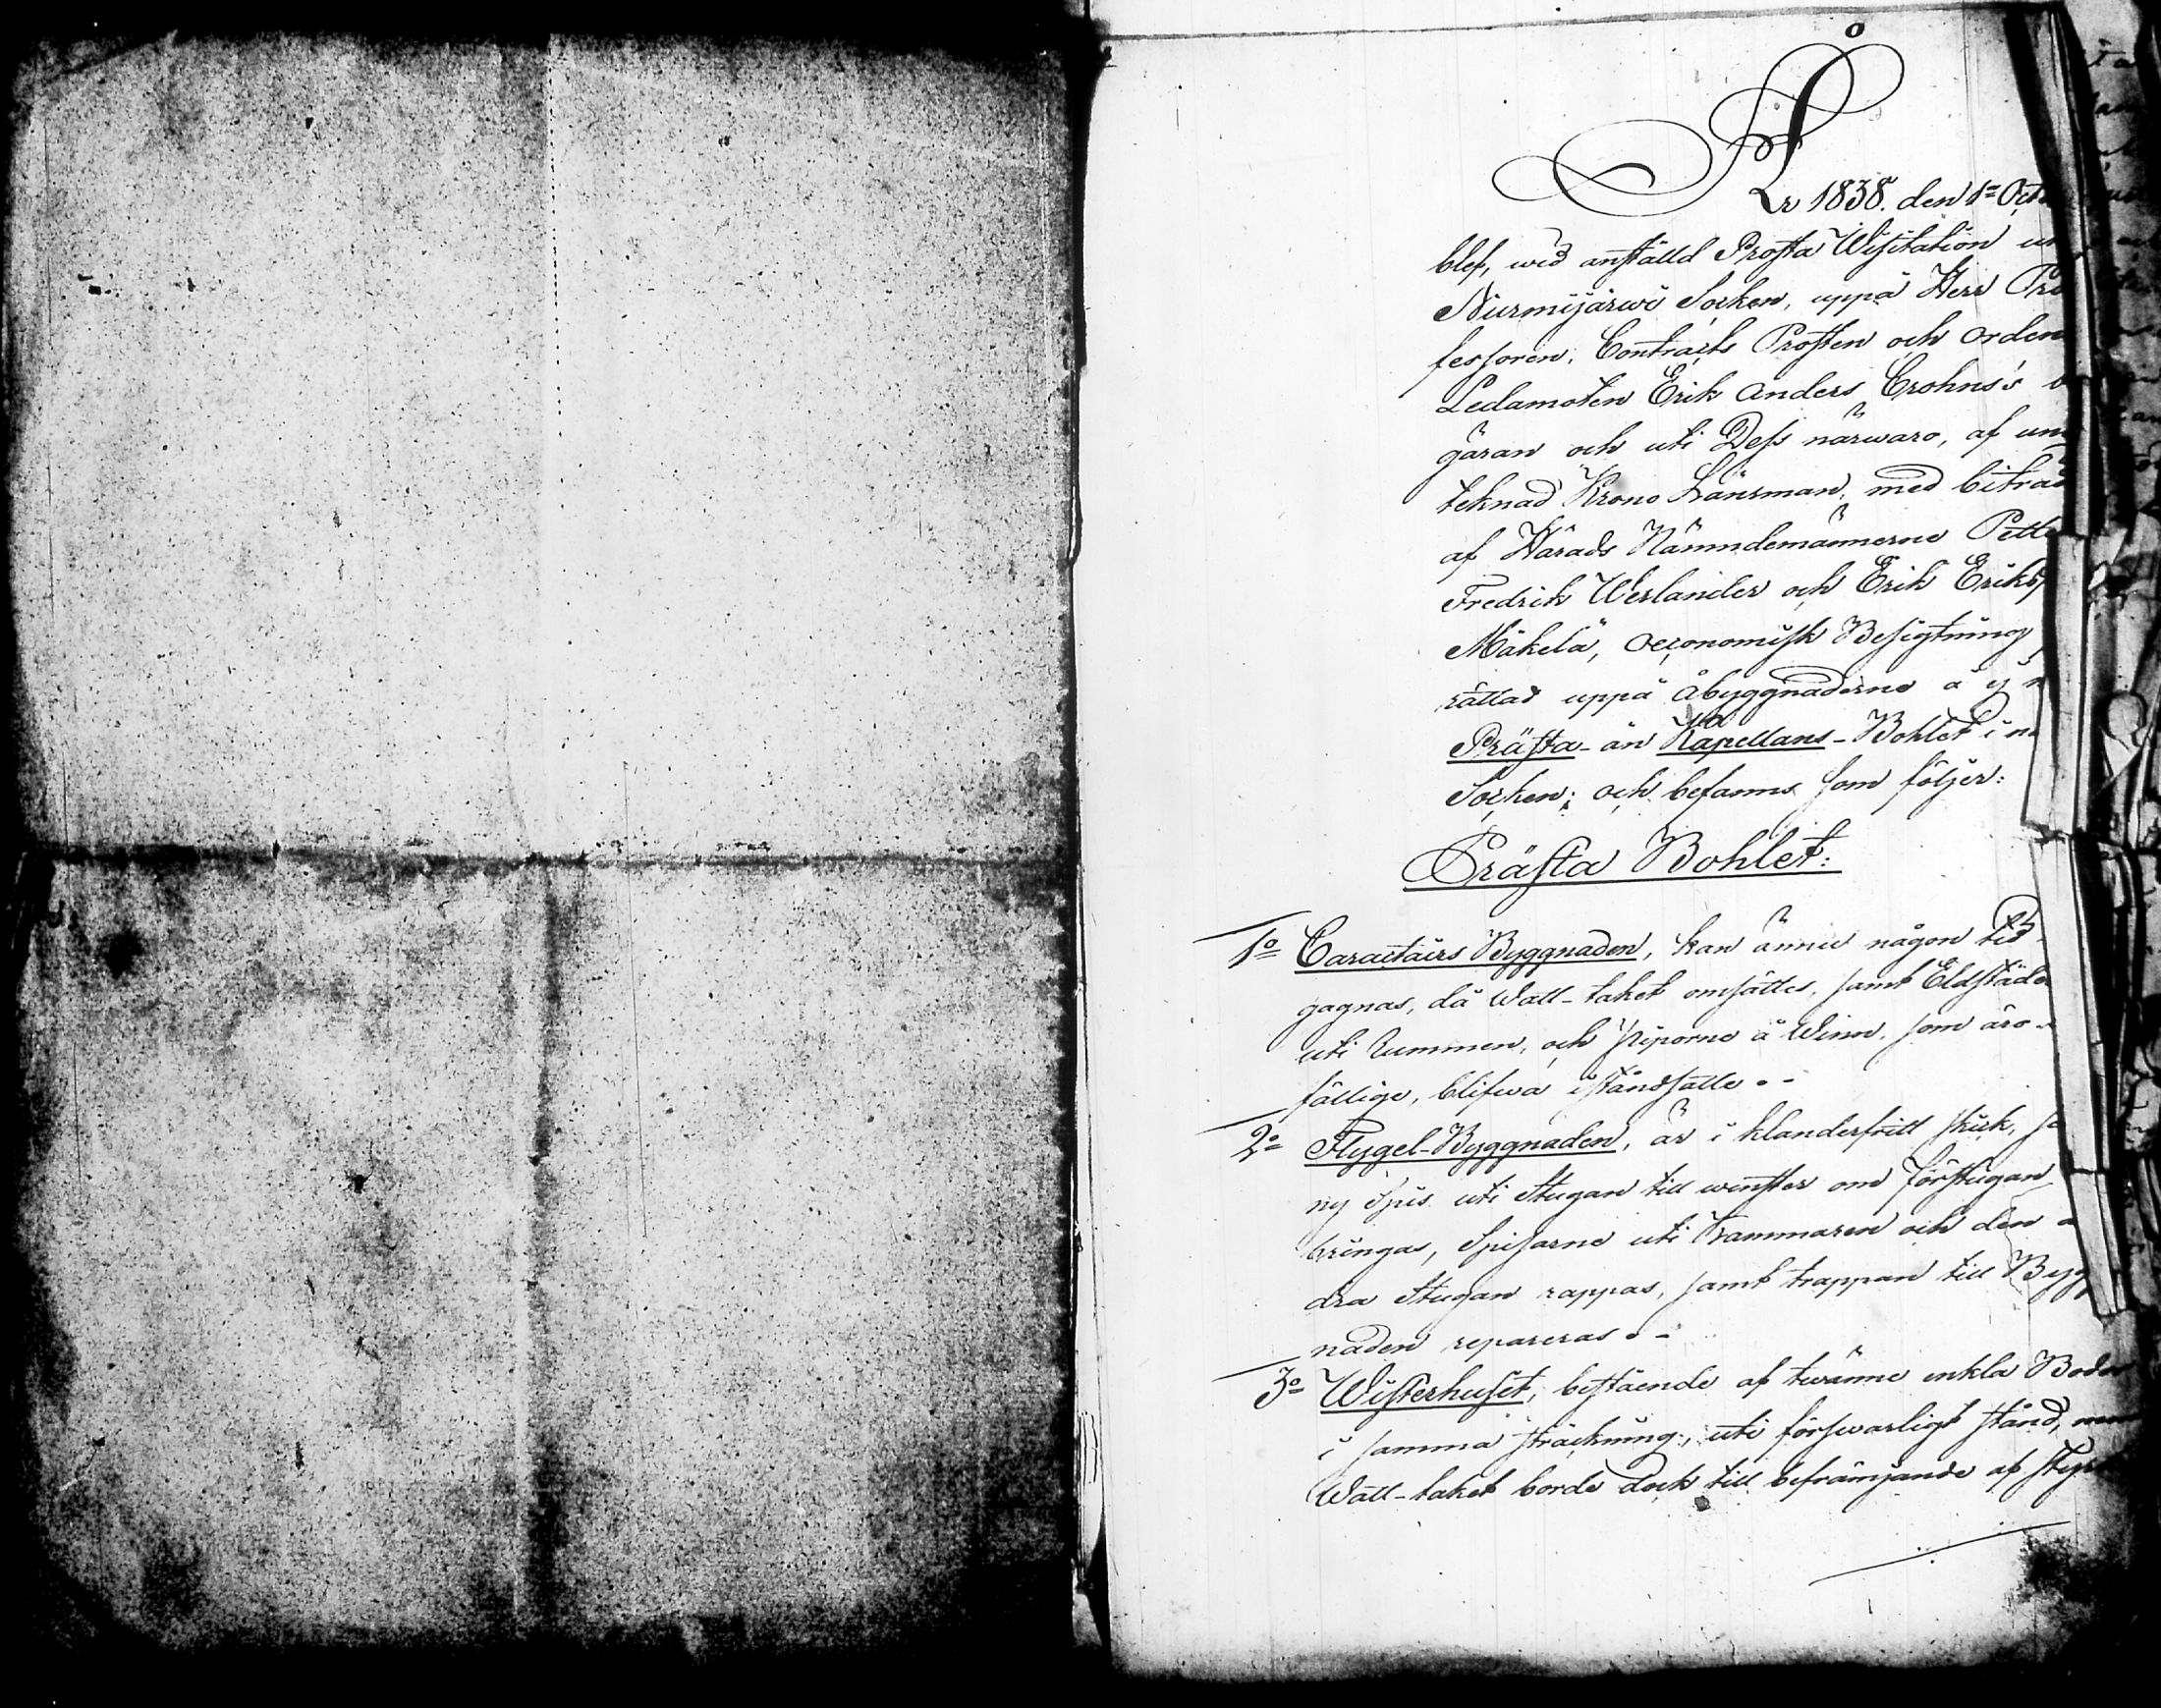 År 1838. den 1= Oct
blef, wid anställd Prosta Wisitation u
Nurmijärwi Socken, uppå Herr Pro
fessoren, Contracts Prosten och Orden
Ledamoten Erik Anders Crohns's b
gäran och uti Dess närwaro, af un
teknad Krono Länsman, med biträd
af Härads Nämndemännerne Petter
Fredrik Werlander och Erik Eriks
Mäkelä, oeconomisk Besigtning
rättad uppå åbyggnaderne å
Prästa- än Kapellans-Bohlet i n
Socken; och befanns som följer:
Prästa Bohlet:
1o Caractairs Byggnaden, kan ännu någon tid
gagnas, då Watt-taket omsättes, samt Eldstäde
uti Rummen, och piporne å Winn, som äro
fällige, blifwa iståndsatte.-
2o Flygel-Byggnaden, är i klanderfritt skick,
ny Spis uti Stugan till wenster om Förstugan
bringas, Spisarne uti Kammaren och den a
dra Stugan rappas, samt trappan till Bygg
naden repareras.-
3o Wisterhuset, bestående af twänne enkla Bodar
i samma sträckning, uti förswarligt stånd, men
Watt-taket borde dock till befrämjande af